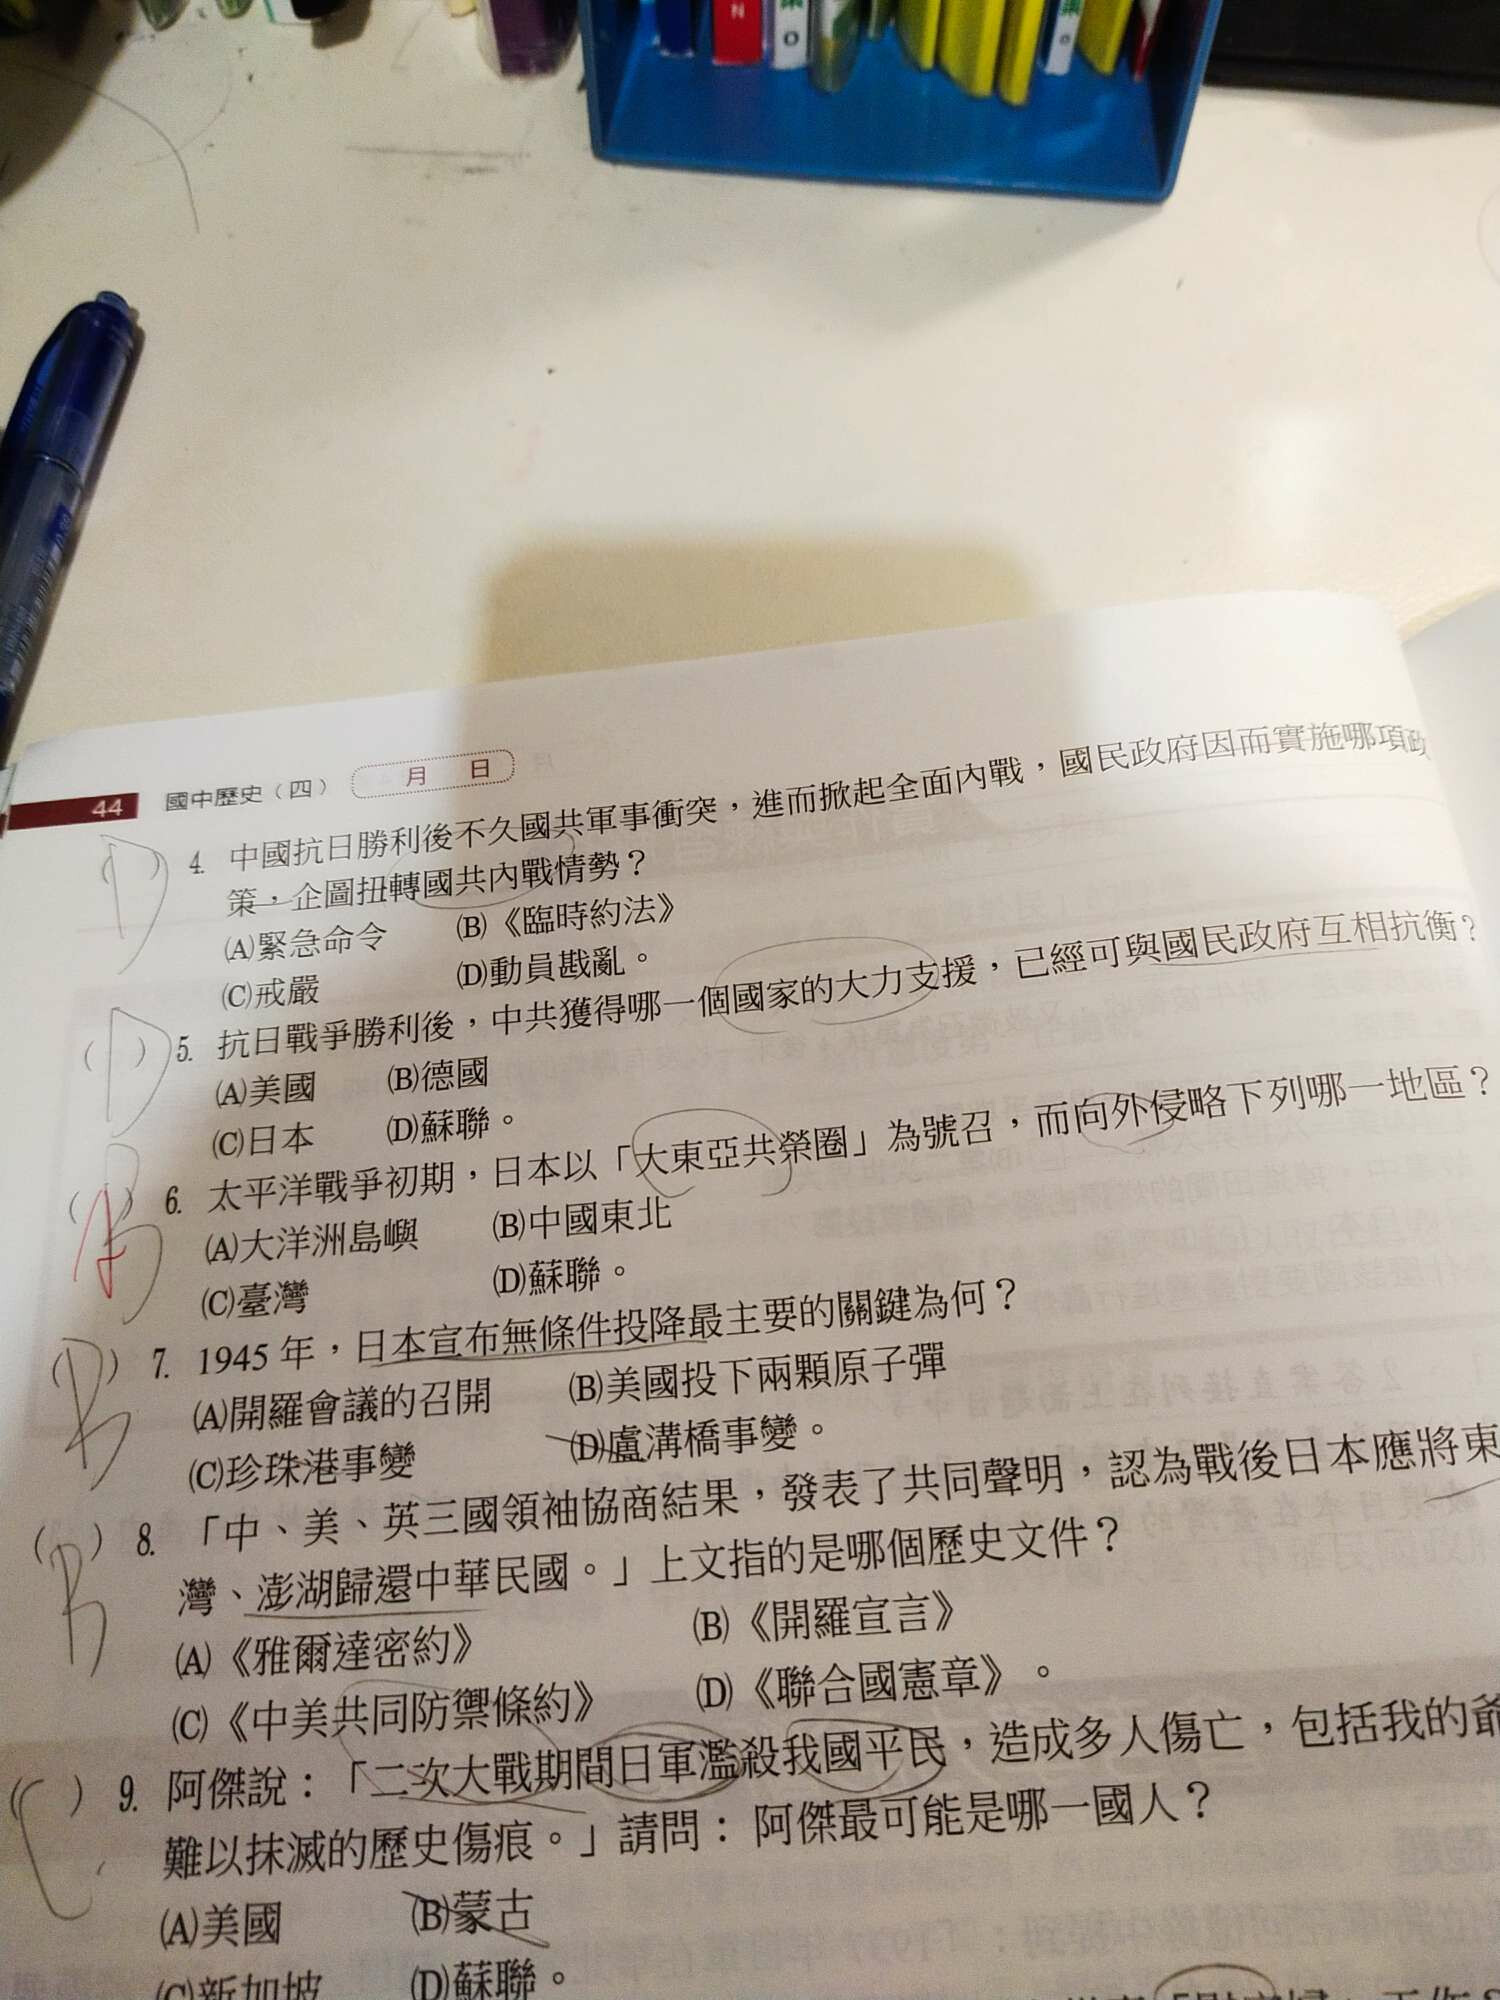 44 國中歷史(四) 月 日
(D) 4. 中國抗日勝利後不久國共軍事衝突，進而掀起全面內戰，國民政府因而實施哪項政
策，企圖扭轉國共內戰情勢？
(A)緊急命令 (B)《臨時約法》
(C)戒嚴 (D)動員戡亂。
(D) 5. 抗日戰爭勝利後，中共獲得哪一個國家的大力支援，已經可與國民政府互相抗衡？
(A)美國 (B)德國
(C)日本 (D)蘇聯。
( ) 6. 太平洋戰爭初期，日本以「大東亞共榮圈」為號召，而向外侵略下列哪一地區？
(A)大洋洲島嶼 (B)中國東北
(C)臺灣 (D)蘇聯。
(B) 7. 1945 年，日本宣布無條件投降最主要的關鍵為何？
(A)開羅會議的召開 (B)美國投下兩顆原子彈
(C)珍珠港事變 (D)盧溝橋事變。
(B) 8. 「中、美、英三國領袖協商結果，發表了共同聲明，認為戰後日本應將東
灣、澎湖歸還中華民國。」上文指的是哪個歷史文件？
(A)《雅爾達密約》 (B)《開羅宣言》
(C)《中美共同防禦條約》 (D)《聯合國憲章》。
(C) 9. 阿傑說：「二次大戰期間日軍濫殺我國平民，造成多人傷亡，包括我的爺
難以抹滅的歷史傷痕。」請問：阿傑最可能是哪一國人？
(A)美國 (B)蒙古
(C)新加坡 (D)蘇聯。